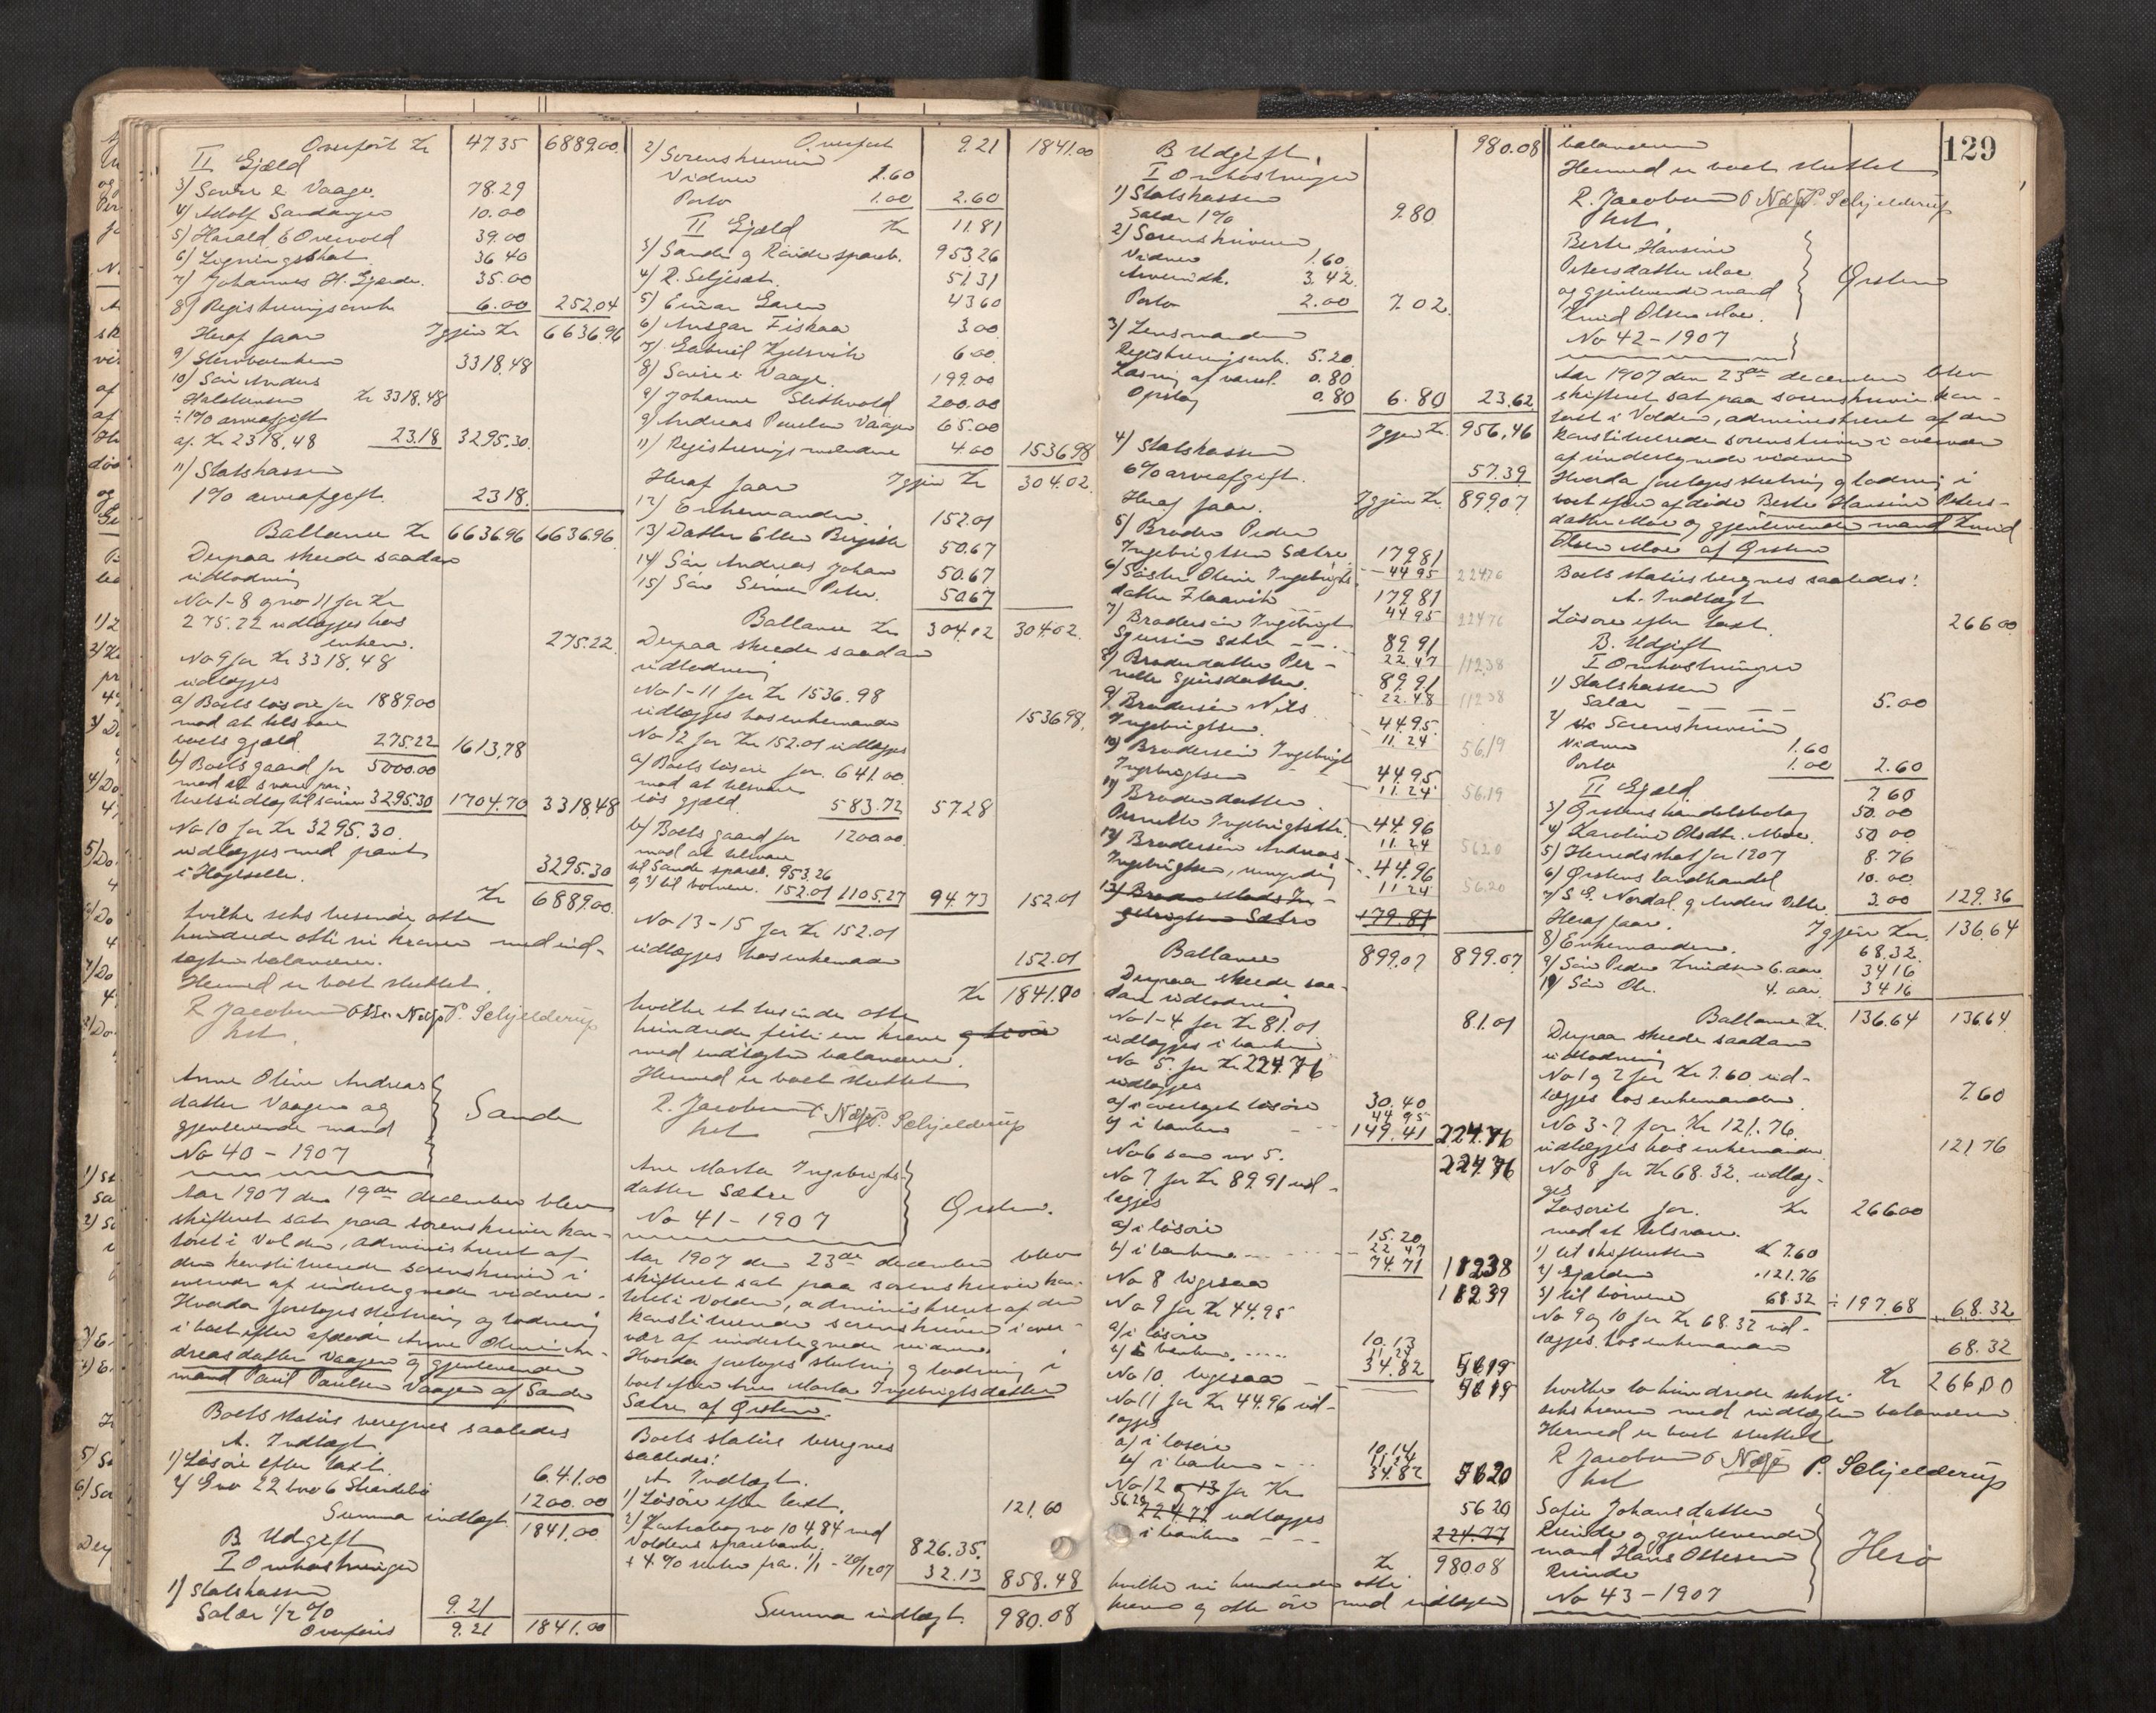 Overført Kr 47.35 6889.00
II Gjæld
3) Sevrin E Vaage. 78.29
4) Adolf Sandanger 10.00
5) Harald E Overvold 39.00
6) Ligningsskat 36 40
7) Johannes H. Gjerde. 35.00
8) Registreringsomk. 6.00 252.04
Heraf faar Igjen Kr 6636.96
9) Stervboenken 3318.48
10) Søn Anders
Halstensen Kr 3318.48
÷ 1% arveafgift
af Kr 2318.48 23.18 3295.30
11) Statskassen
1% arveafgift 23.18.
Ballance Kr 6636.96 6636.96
Derpaa skeede saadan
udlodning
No 1-8 og no 11 for Kr
275.22 udlægges hos
enken. 275.22.
No 9 for Kr 3318.48
udlægges
a) Boets løsøre for 1889.00
mod at tilsvare
boets gjæld 275.22 1613.78
b) Boets gaard for 5000.00
mod at svare pan-
teudlæg til sønnen 3295.30 1704.70 3318.48
No 10 for Kr 3295.30
udlægges med pant
i 3295.30
Kr 6889.00
hvilke seks tusinde otte
hundrede otti ni kroner med ind-
tægten balancerer.
Hermed er boet sluttet.
R Jacobsen P. Schjelderup
kst.
Anne Oline Andreas
datter Vaagen og
gjenlevende mand
No 40 - 1907
Sande
Aar 1907 den 19de december blev
skifteret sat paa sorenskriver kon-
toret i Volden, administreret af
den konstituerede sorenskriver i
overvær af undertegnede vidner.
Hvorda foretoges slutning og lodning
i boet efter afdøde Anne Oline An-
dreasdatter Vaagen og gjenlevende
mand Paul Paulsen Vaagen af Sande
Boets status beregnes saaledes
A. Indtægt
1) Løsøre efter taxt. 641.00
2) Gno 22 bno 6 Strandebø 1200.00
Summa indtægt. 1841.00
B Udgift
I Omkostninger
1) Statskassen
Salær 1/2 % 9.21
Overføres 9.21 1841.00
Overført 9.21 1841.00
2) Sorenskriveren
Vidner 1.60
Porto 1.00 2.60
II Gjæld Kr 11.81
3) Sande og Rovde spareb. 953.26
4) R. Seljeset. 51.31
5) Einar Garen 43.60
6) Ansgar Fiskaa 3.00
7) Gabriel Kjelsvik 6.00
8) Sevrin E. Vaage. 199.00
9) Johanne Slettevold 200.00
9) Andreas Paulsen Vaagen 65.00
11) Registrerings 4.00 1536.98
Heraf faar Igjen Kr 304.02
12) Enkemanden. 152.01
13) Datter Ellen Birgithe 50.67
14) Søn Andreas Johan 50.67
15) Søn Peter. 50.67
Ballance Kr 304.02 304.02.
Derpaa skeede saadan
udlodning
No 1-11 for Kr 1536.98
udlægges hos enkemanden 1536.98.
No 12 for Kr 152.01 udlægges
a) Boets løsøre for. 641.00
mod at tilsvare
løs gjæld 583.72 57.28
b) Boets gaard for 1200.00
mod at tilsvare
til Sande spareb. 953.26
og til børnene. 152.01 1105.27 94.73 152.01
No 13-15 for Kr 152.01
udlægges hos enkemanden 152.01
Kr 1841.00
hvilke et tusinde otte
hundrede firti en krone
med indtægten balancerer.
Hermed er boet sluttet
R. Jacobsen P. Schjelderup
kst
Ane Marta Ingebrigts-
datter Sætre
No 41 - 1907
Ørsten.
Aar 1907 den 23de december blev
skifteret sat paa sorenskriver kon-
toret i Volden, administreret af den
konstituerede sorenskriver i over-
vær af undertegnede vidner.
Hvorda foretoges slutning og lodning i
boet efter Ane Marta Ingebrigtsdatter
Sætre af Ørsten.
Boets status beregnes
saaledes:
A Indtægt.
1) Løsøre efter taxt. 121.60
2) Kontrabog no 10484 med
Voldens sparebank. 826.35.
+ 4% renter fra. 1/1 - 20/12 07 32.13 858.48
Summa indtægt. 980.08
129
B Udgift. 980.08
I Omkostninger
1) Statskassen
Salær 1% 9.80
2) Sorenskriveren
Vidner 1.60
3.42
Porto 2.00 7.02
3) Lensmanden
Registreringsomk. 5.20
Læsning af varsel. 0.80
Opslag 0.80 6.80 23.62
Igjen Kr. 956.46
4) Statskassen
6% arveafgift. 57.39
Heraf faar. Igjen Kr. 899.07
5) Broder Peder
Ingebrigtsen Sætre 179.81
44 95 224.76
6) Søster Oline Ingebrigts-
datter Flaavik 179.81
44 95 224 76
7) Brodersøn Ingebrigt
Sjursen Sætre 89.91
22.47 112.38
8) Broderdatter Per-
nille Sjursdatter. 89.91
22.48 112.38
9) Brodersøn Nils
Ingebrigtsen. 44.95.
11.24 56.19
10) Brodersøn Ingebrigt
Ingebrigtsen 44.95
11.24 56.19
11) Broderdatter
Pernille Ingebrigtsdtr. 44.96
11.24 56.20
12) Brodersøn Andreas
Ingebrigtsen, umyndig 44.96
11 24 56.20
13) Broder Mads In-
gebrigtsen Sætre 179.81
Ballance 899.07 899.07
Derpaa skeede saa-
dan udlodning
No 1-4 for Kr 81.01
udlægges i banken 81.01
No 5. for Kr 224.76
udlægges
a) i løsøre 30.40
44 95
b) i banken 149.41 224.76
No 6 som nr 5. 224.76
No 7 for Kr 89.91 ud-
lægges
a) i løsøre 15.20
22 47
b) i banken 74.71 112.38
No 8 ligesaa 112.39
No 9 for Kr 44.95
a) i løsøre 10.13
11.24
b) i banken 34.82 56.19
No 10 ligesaa 56.19
No 11 for Kr 44.96 ud-
lægges
a) i løsøre 10.14
11.24
b) i banken 34.82 56.20
No 12 og 13 for Kr
56.20 224.77 udlægges
i banken 56 20
224.77
Kr 980.08
hvilke ni hundrede otti
kroner og otte øre med indtægten
balancerer
Hermed er boet sluttet
R. Jacobsen P. Schjelderup
kst.
Berte Hansine
Petersdatter Moe
og gjenlevende mand
Knud Olsen Moe.
No 42 - 1907
Ørsten
Aar 1907 den 23de december blev
skifteret sat paa sorenskriver kon-
toret i Volden, administreret af den
konstituerede sorenskriver i overvær
af undertegnede vidner
Hvorda foretoges slutning og lodning i
boet efter afdøde Berte Hansine Peters-
datter Moe og gjenlevende mand Knud
Olsen Moe af Ørsten
Boets status beregnes saaledes:
A. Indtægt
Løsøre efter taxt. 266.00
B. Udgift
I Omkostninger
1) Statskassen
Salær 5.00
2) Sorenskriveren
Vidner 1.60
Porto 1.00 2.60
II Gjæld. 7.60
3) Ørstens handelsbolag 50.00
4) Karoline Olsdtr. Moe. 50 00
5) Herredsskat for 1907 8.76
6) Ørstens landhandel 10.00.
7) S E. Nordal og Anders 3.00 129.36
Heraf faar. Igjen Kr. 136.64
8) Enkemanden. 68.32.
9) Søn Peder Knudsen 6. aar. 34 16
10) Søn Ole. 4. aar. 34 16
Ballance Kr. 136.64 136.64
Derpaa skeede saadan
udlodning
No 1 og 2 for Kr 7.60 ud-
lægges hos enkemanden. 7.60
No 3-7 for Kr 121.76
udlægges hos enkemanden 121.76
No 8 for Kr 68.32. udlæg-
ges
Løsøret for. Kr 266.00
mod at tilsvare.
1) til skifteretten K 7.60
2) Gjælden 121.76
3) til børnene 68.32 ÷ 197.68 68.32
No 9 og 10 for Kr 68.32 ud-
lægges hos enkemanden 68.32
Kr 266.00
hvilke to hundrede seksti
seks kroner med indtægten balancerer
Hermed er boet sluttet
R Jacobsen P. Schjelderup
kst
Sofie Johansdatter
Kvinde og gjenlevende
mand Hans Ottesen
Kvinde
No 43 - 1907
Herø